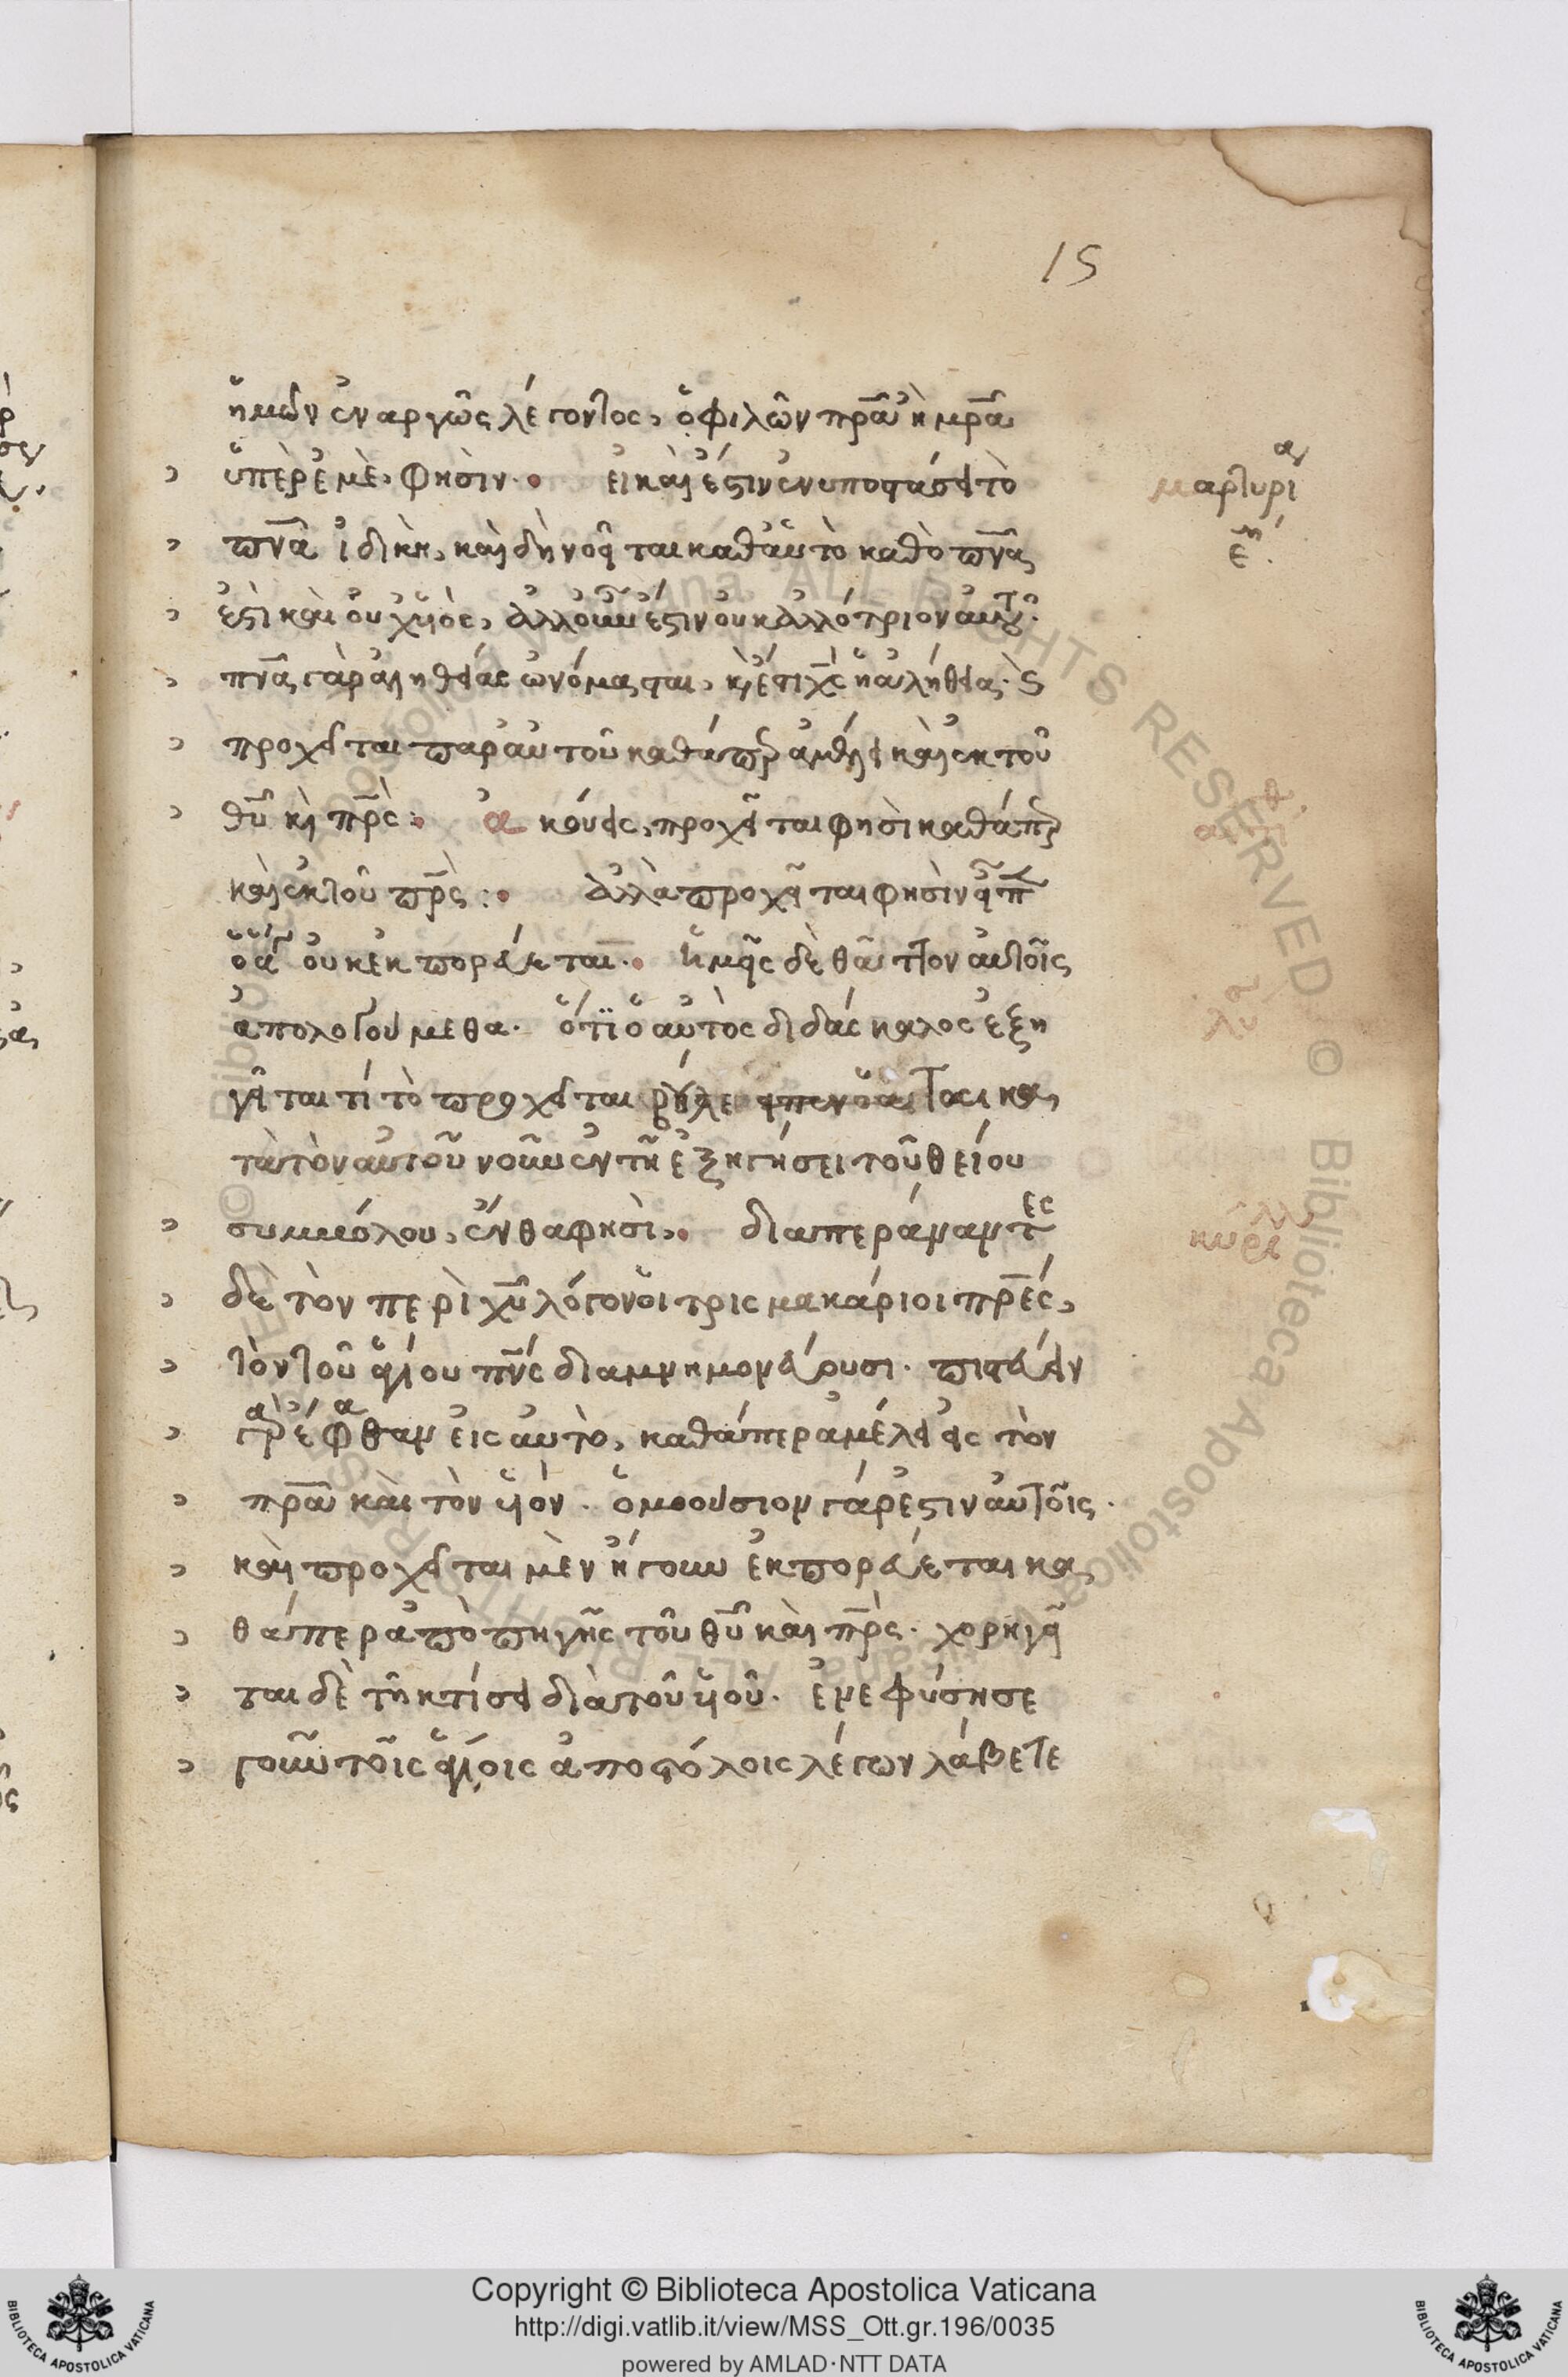 15
ἡμῶν ἐναργῶς λέγοντος, ὁ φιλῶν πρ̅α̅ ἢ μρ̅α̅
ὑπὲρ ἐμὲ, φησὶν. εἰ καὶ ἔστιν ἐν ὑποστάσει τὸ
πν̅α̅ ἰδικῆ, καὶ δὴ νοεῖται καθ' αὑτὸ καθὸ πν̅α̅
ἐστὶ καὶ οὐχ υἱὸς, ἀλλ' οὖν ἔστιν οὐκ ἀλλότριον αὐτοῦ.
πν̅α̅ γὰρ ἀληθείας ὠνόμασται, κ̀ ἔστι χ̅ς̅ ἡ ἀλήθεια. κ̀
προχεῖται παρ' αὐτοῦ καθάπερ ἀμέλει καὶ ἐκ τοῦ
θ̅υ̅ κ̀ πρ̅ς̅. ἀκούεις, προχεῖται φησὶ καθάπερ
καὶ ἐκ τοῦ πρ̅ς̅. ἀλλὰ προχεῖται φησὶν
οὐκ ἐκπορεύεται. ἡμεῖς δὲ θᾶττον αὐτοῖς
ἀπολογούμεθα. ὅτι ὁ αὐτὸς διδάσκαλος ἐξη
γεῖται τί τὸ προχεῖται κα
τὰ τὸν αὐτοῦ νοῦν ἐν τῇ ἐξηγήσει τοῦ θείου
συμβόλου, ἔνθα φησὶ, διαπεράναντες
δὲ τὸν περὶ χ̅υ̅ λόγον οἱ τρισμακάριοι πρ̅ε̅ς̅,
τὸν τοῦ ἁγίου πν̅ς̅ διαμνημονεύουσι. πιστεύειν
γὰρ ἔφασαν εἰς αὐτὸ, καθάπερ ἀμέλει εἰς τὸν
πρ̅α̅ καὶ τὸν υἱόν. ὁμοούσιον γάρ ἐστιν αὐτοῖς.
καὶ προχεῖται μὲν ἤγουν ἐκπορεύεται κα
θάπερ ἀπὸ πηγῆς τοῦ θ̅υ̅ καὶ πρ̅ς̅. χορηγεῖ
ται δὲ τῇ κτίσει διὰ τοῦ υἱοῦ. ἐνεφύσησε
γοῦν τοῖς ἁγίοις ἀποστόλοις λέγων λάβετε
μαρτυρία
Copyright © Biblioteca Apostolica Vaticana
http://digi.vatlib.it/view/MSS_Ott.gr.196/0035
powered by AMLAD·NTT DATA